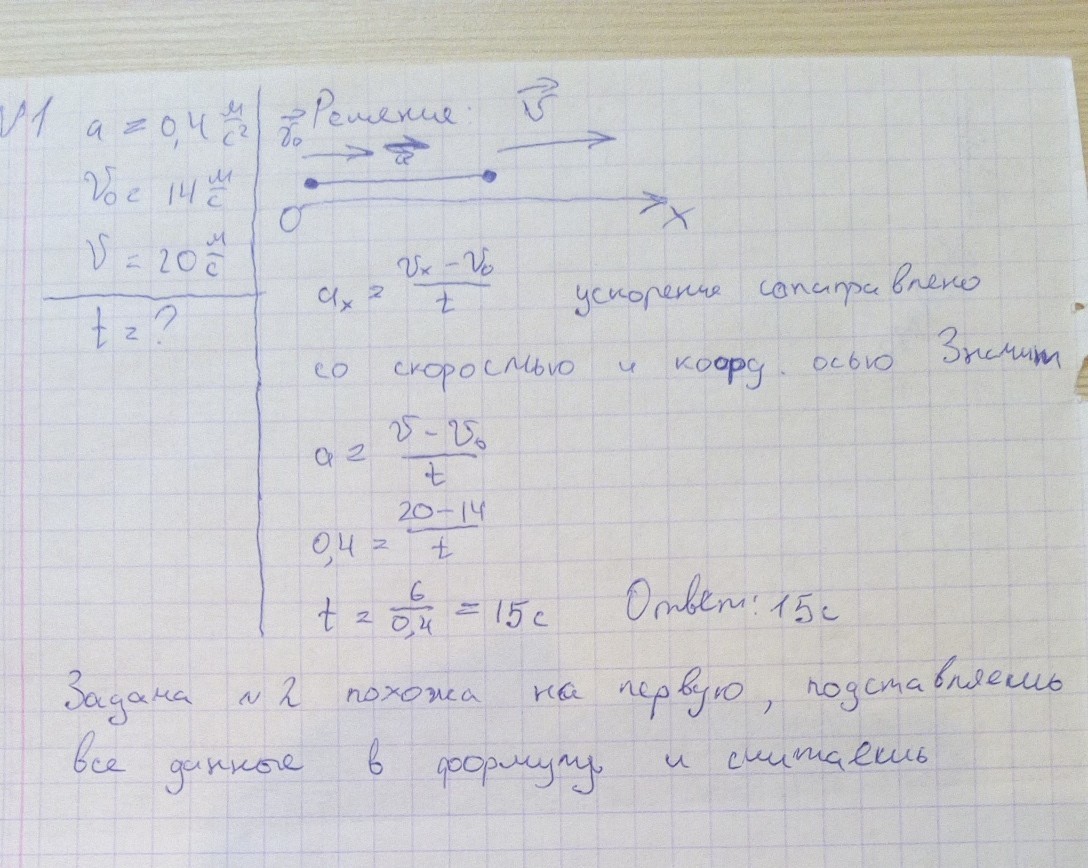 №1
a = 0,4 м/с²
v₀ = 14 м/с
v = 20 м/с
t = ?
Решение:
v₀ a v
O X
aₓ = (vₓ - v₀)/t ускорение сонаправлено
со скоростью и коорд. осью Значит
a = (v - v₀)/t
0,4 = (20-14)/t
t = 6/0,4 = 15с Ответ: 15с
Задача №2 похожа на первую, подставляешь
все данные в формулу и считаешь